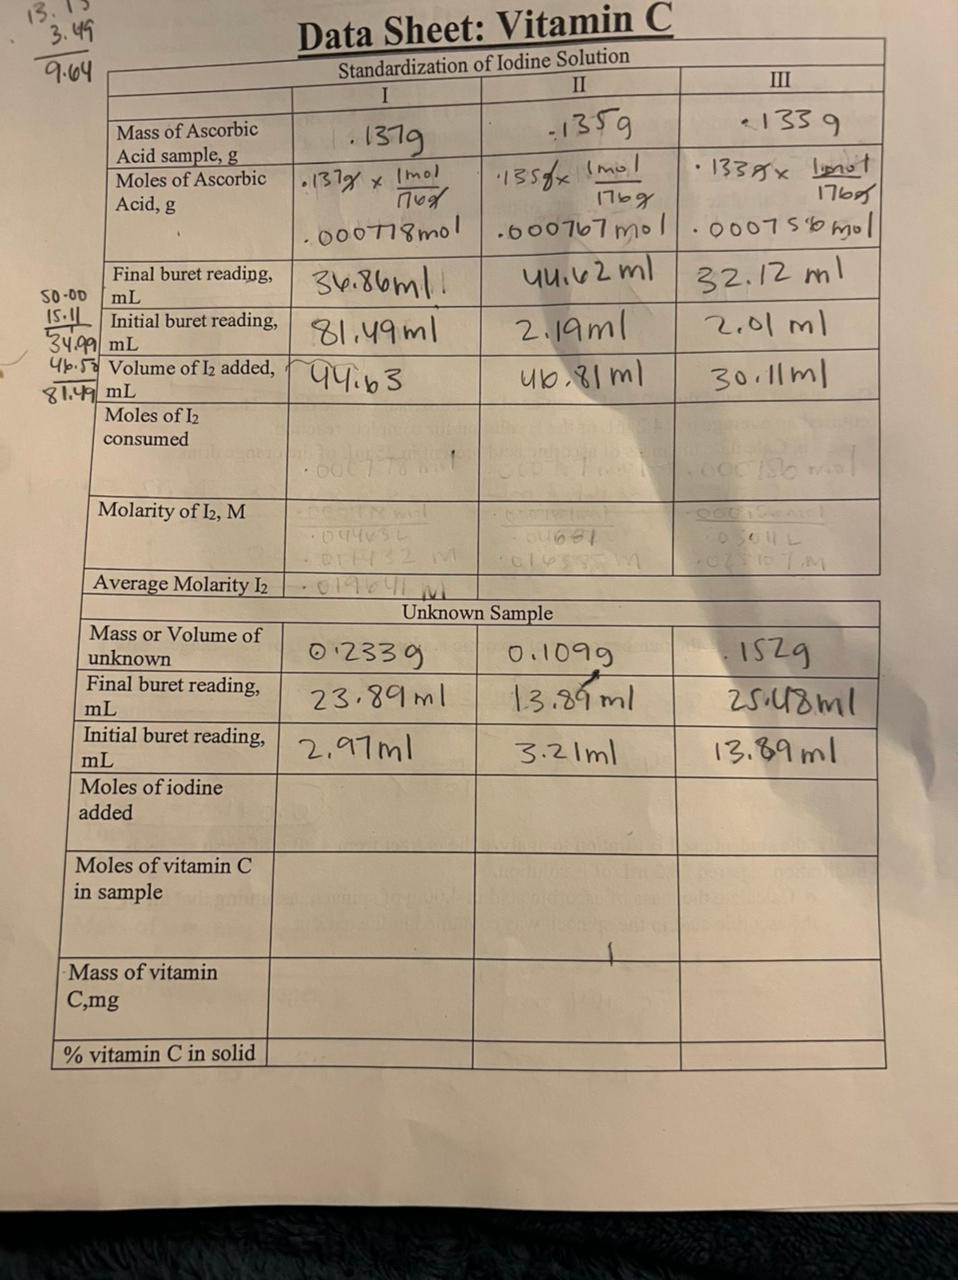 13.13
3.49
9.64
Data Sheet: Vitamin C
Standardization of Iodine Solution
I II III
Mass of Ascorbic Acid sample, g
.137g .135g .133g
Moles of Ascorbic Acid, g
.137g x 1mol/176g .135g x 1mol/176g .133g x 1mol/176g
.000778mol .000767mol .000756mol
Final buret reading, mL
36.86ml. 44.62ml 32.12 ml
50.00
15.11
34.99
46.50
81.49
Initial buret reading, mL
81.49ml 2.19ml 2.01 ml
Volume of I2 added, mL
44.63 46.81ml 30.11ml
Moles of I2 consumed
.000778 mol .000756 mol
Molarity of I2, M
.04463L .04681 .03011L
.025107 M
Average Molarity I2
.019641 M
Unknown Sample
Mass or Volume of unknown
0.233g 0.109g .152g
Final buret reading, mL
23.89ml 13.89ml 25.48ml
Initial buret reading, mL
2.97ml 3.21ml 13.89ml
Moles of iodine added
Moles of vitamin C in sample
Mass of vitamin C,mg
% vitamin C in solid